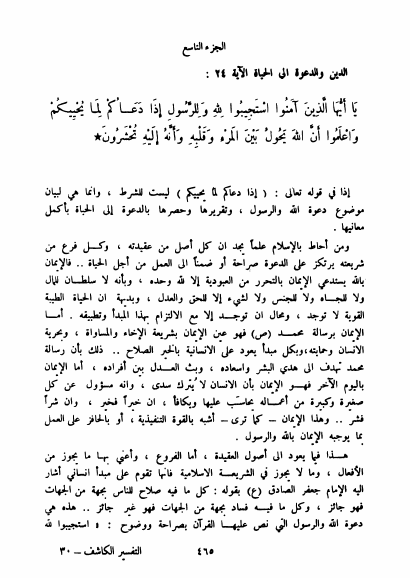 الجزء التاسع
الدين والدعوة الى الحياة الآية ٢٤ :
يَا أَيُّهَا الَّذِينَ آمَنُوا اسْتَجِيبُوا لِلهِ وَلِلرَّسُولِ إِذَا دَعَاكُمْ لِمَا يُحْيِيكُمْ
وَاعْلَمُوا أَنَّ اللهَ يَحُولُ بَيْنَ الْمَرْءِ وَقَلْبِهِ وَأَنَّهُ إِلَيْهِ تُحْشَرُونَ★
إذا في قوله تعالى : ( إذا دعاكم لما يحييكم ) ليست للشرط ، وانما هي لبيان
موضوع دعوة الله والرسول ، وتقريرها وحصرها بالدعوة إلى الحياة بأكمل
معانيها .
ومن أحاط بالإسلام علماً يجد ان كل أصل من عقيدته ، وكل فرع من
شريعته يرتكز على الدعوة صراحة أو ضمناً الى العمل من أجل الحياة .. فالإيمان
بالله يستدعي الإيمان بالتحرر من العبودية إلا لله وحده ، وبأنه لا سلطان للمال
ولا للجاه ولا للجنس ولا لشيء إلا للحق والعدل ، وبديهة ان الحياة الطيبة
القوية لا توجد ، ومحال ان توجد إلا مع الالتزام بهذا المبدأ وتطبيقه . أما
الإيمان برسالة محمد (ص) فهو عين الإيمان بشريعة الإخاء والمساواة ، وبحرية
الانسان وحمايته،وبكل مبدأ يعود على الانسانية بالخير الصلاح .. ذلك بأن رسالة
محمد تهدف الى هدي البشر واسعاده ، وبث العدل بين أفراده ، أما الإيمان
باليوم الآخر فهو الإيمان بأن الانسان لا يُترك سدى ، وانه مسؤول عن كل
صغيرة وكبيرة من أعماله يحاسب عليها ويكافأ ، ان خيراً فخير ، وان شراً
فشر .. وهذا الإيمان - كما ترى - أشبه بالقوة التنفيذية ، أو بالحافز على العمل
بما يوجبه الإيمان بالله والرسول .
هذا فيما يعود الى أصول العقيدة ، أما الفروع ، وأعني بها ما يجوز من
الأفعال ، وما لا يجوز في الشريعة الاسلامية فانها تقوم على مبدأ انساني أشار
اليه الإمام جعفر الصادق (ع) بقوله : كل ما فيه صلاح للناس بجهة من الجهات
فهو جائز ، وكل ما فيه فساد بجهة من الجهات فهو غير جائز .. هذه هي
دعوة الله والرسول التي نص عليها القرآن بصراحة ووضوح : « استجيبوا لله
٤٦٥
التفسير الكاشف - ٣٠